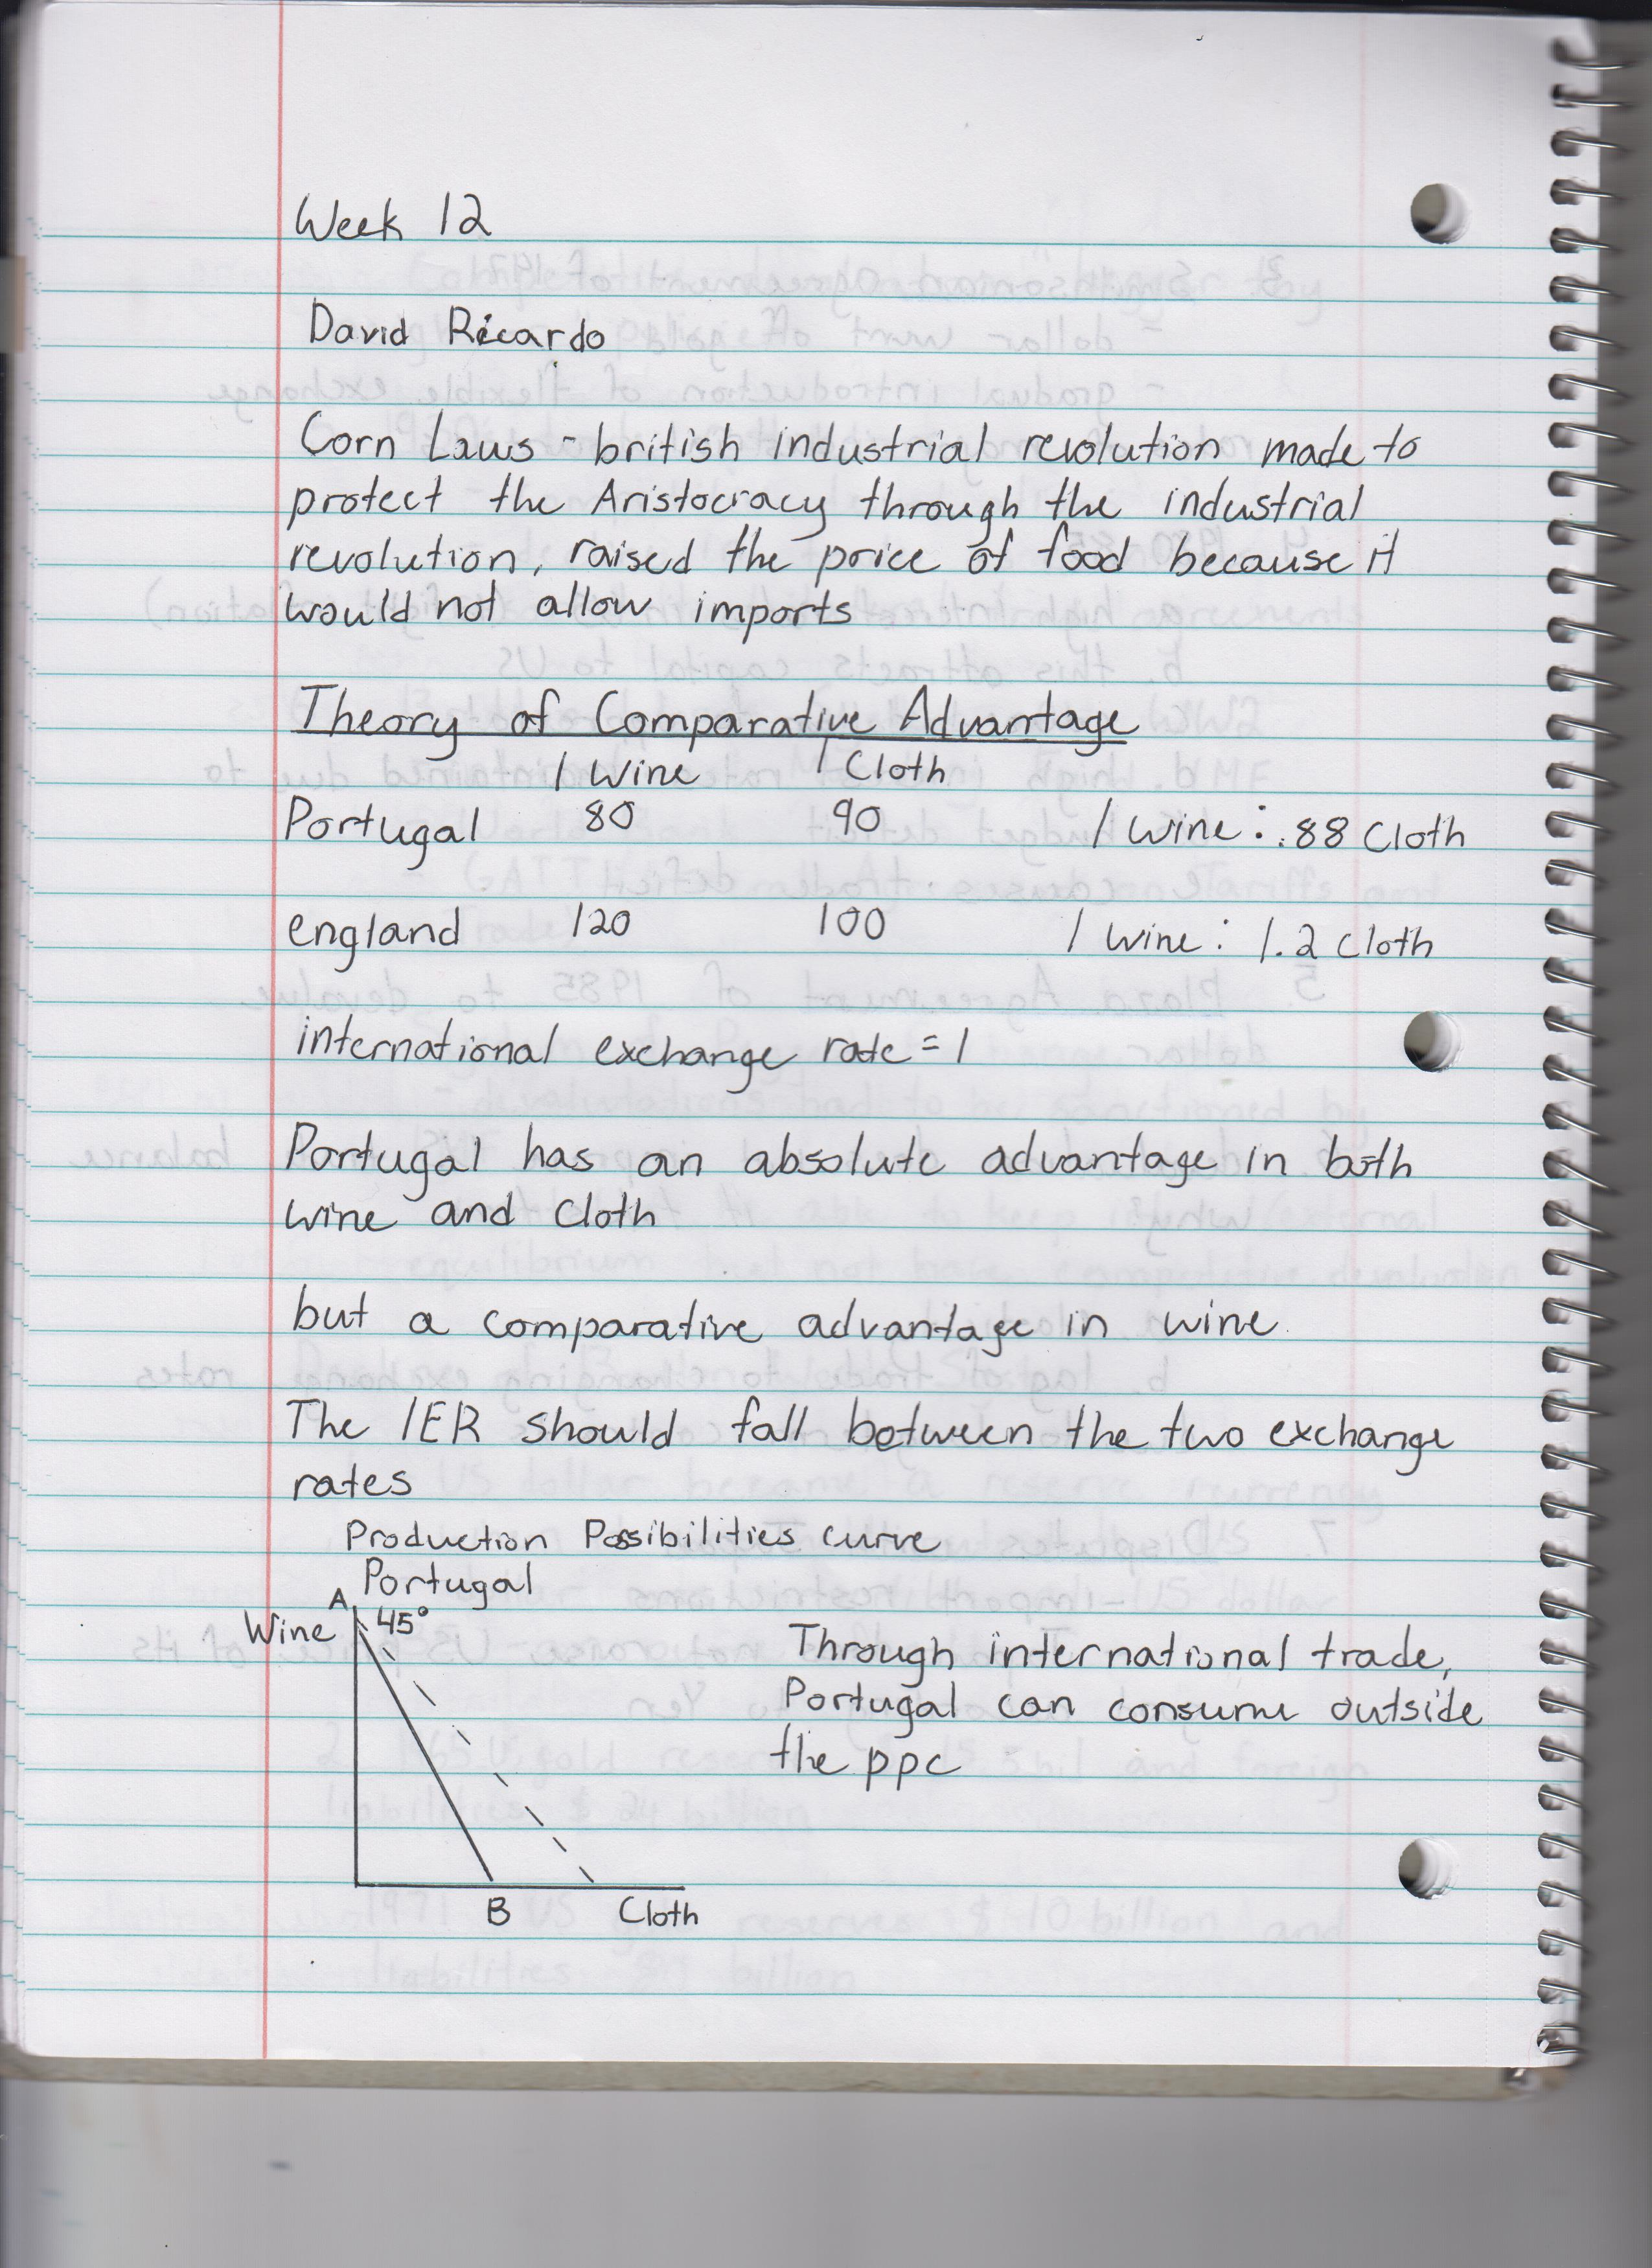 Week 12
David Ricardo
Corn Laws - british industrial revolution made to
protect the Aristocracy through the industrial
revolution, raised the price of food because it
would not allow imports
Theory of Comparative Advantage
1 Wine 1 Cloth
Portugal 80 90 1 wine : .88 Cloth
england 120 100 1 wine : 1.2 Cloth
international exchange rate = 1
Portugal has an absolute advantage in both
wine and cloth
but a comparative advantage in wine.
The IER should fall between the two exchange
rates
Production Possibilities curve
Portugal
A
Wine 45°
Through international trade,
Portugal can consume outside
the ppc
B Cloth